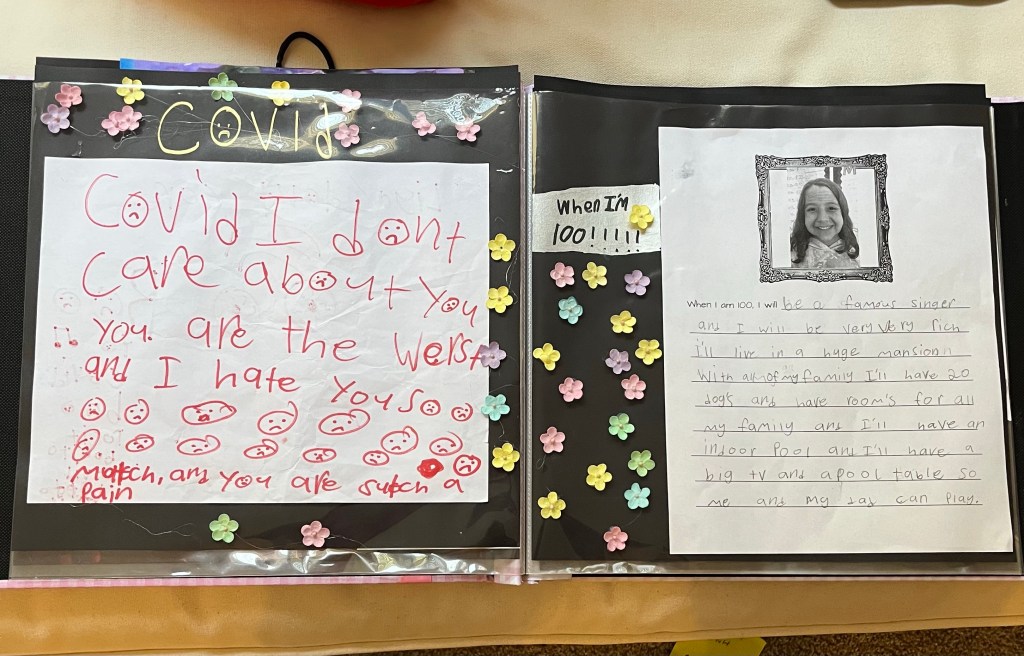 Covid
Covid I dont
care about you
you. are the werst
and I hate you so
mutch, and you are sutch a
pain
When I'm
100!!!!!
When I am 100, I will be a famous singer
and I will be very very rich
i'll live in a huge mansion
With all of my family I'll have 20
dog's and have room's for all
my family and I'll have an
indoor pool and I'll have a
big tv and a pool table so
me and my dad can play.